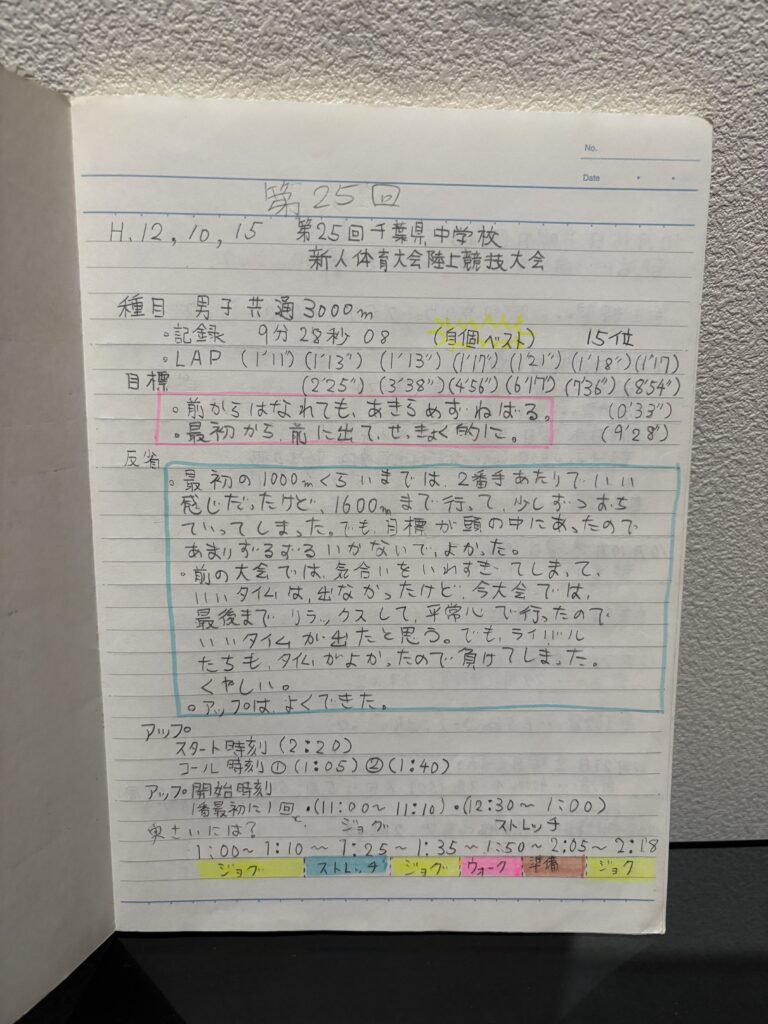 No.
Date ・ ・
第25回
H.12,10,15 第25回千葉県中学校
新人体育大会陸上競技大会
種目 男子共通3000m
・記録 9分28秒08 (自個ベスト) 15位
・LAP (1'11") (1'13") (1'13") (1'17") (1'21") (1'18") (1'17)
目標 (2'25") (3'38") (4'56") (6'17") (7'36") (8'54")
・前からはなれても、あきらめずねばる。 (0'33")
・最初から、前に出て、せっきょく的に。 (9'28")
反省
・最初の1000mくらいまでは、2番手あたりでいい
感じだったけど、1600mまで行って、少しずつおち
ていってしまった。でも、目標が頭の中にあったので
あまりずるずるいかないで、よかった。
・前の大会では、気合いをいれすぎてしまって、
いいタイムは、出なかったけど、今大会では、
最後まで リラックスして、平常心で行ったので
いいタイムが出たと思う。でも、ライバル
たちも、タイムがよかったので負けてしまった。
くやしい。
○アップは、よくできた。
アップ
スタート時刻 (2:20)
コール時刻 ① (1:05) ② (1:40)
アップ開始時刻
1番最初に1回 ・(11:00〜11:10) ・(12:30〜1:00)
と、 ジョグ ストレッチ
実さいには?
1:00〜1:10〜1:25〜1:35〜1:50〜2:05〜2:18
ジョグ ストレッチ ジョグ ウォーク 準備 ジョグ